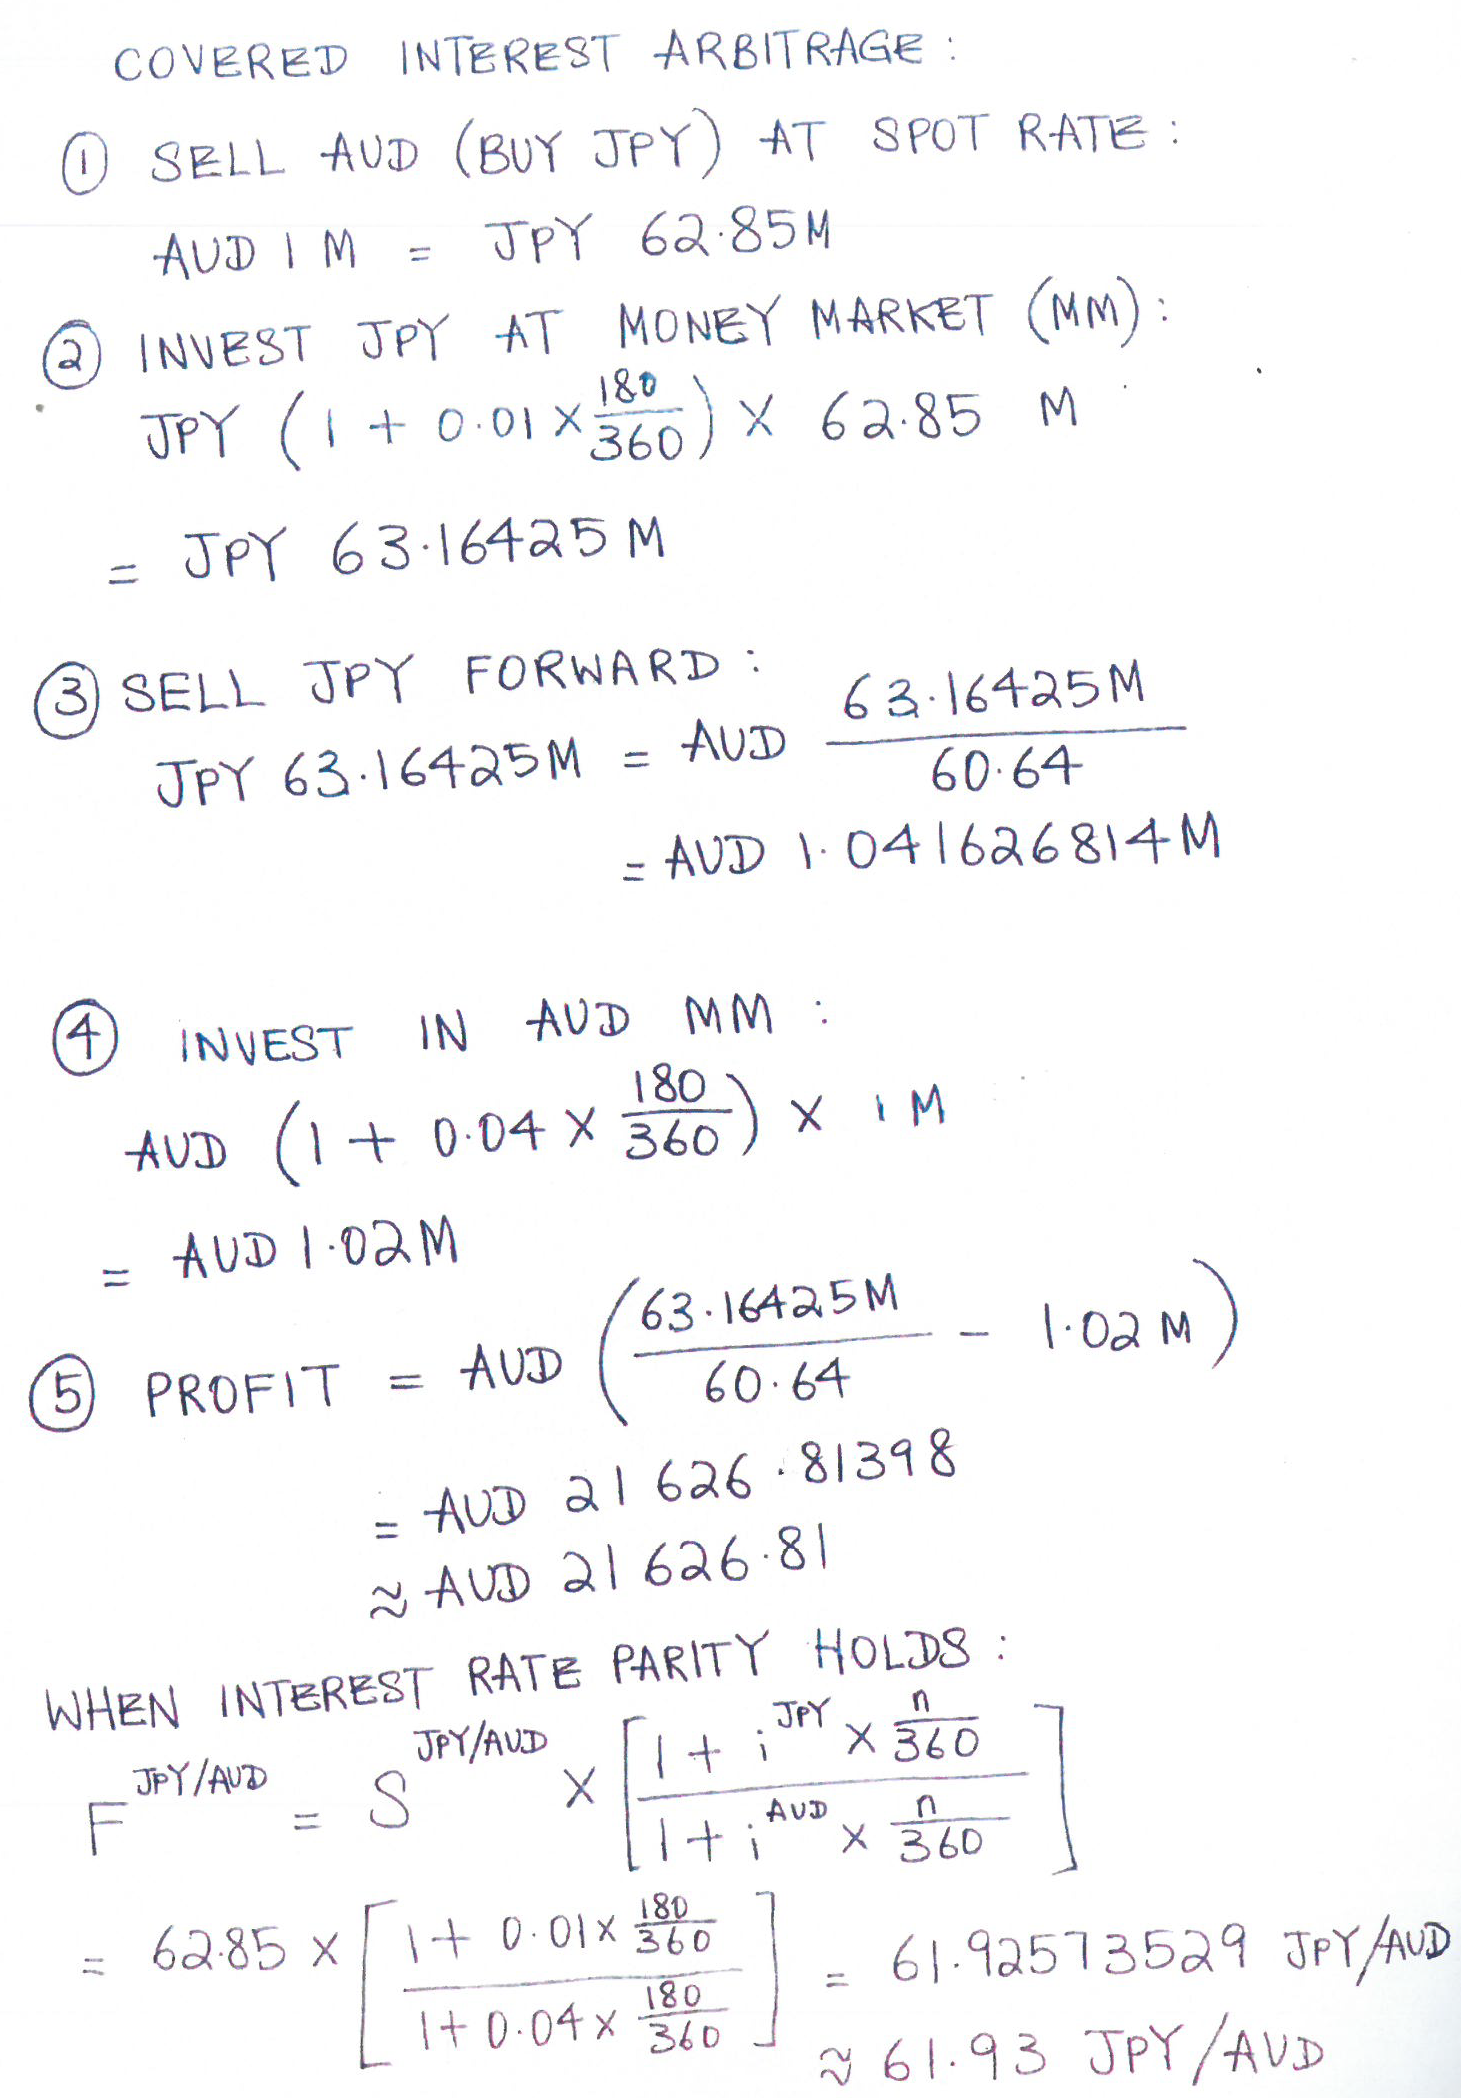 COVERED INTEREST ARBITRAGE :
① SELL AUD (BUY JPY) AT SPOT RATE :
AUD 1 M = JPY 62.85M
② INVEST JPY AT MONEY MARKET (MM) :
JPY (1 + 0.01 × 180/360) × 62.85 M
= JPY 63.16425 M
③ SELL JPY FORWARD :
JPY 63.16425M = AUD 63.16425M/60.64
= AUD 1.041626814M
④ INVEST IN AUD MM :
AUD (1 + 0.04 × 180/360) × 1M
= AUD 1.02M
⑤ PROFIT = AUD (63.16425M/60.64 - 1.02 M)
= AUD 21 626.81398
≈ AUD 21 626.81
WHEN INTEREST RATE PARITY HOLDS :
F^JPY/AUD = S^JPY/AUD × [(1 + i^JPY × n/360)/(1 + i^AUD × n/360)]
= 62.85 × [(1 + 0.01 × 180/360)/(1 + 0.04 × 180/360)] = 61.92573529 JPY/AUD
≈ 61.93 JPY/AUD